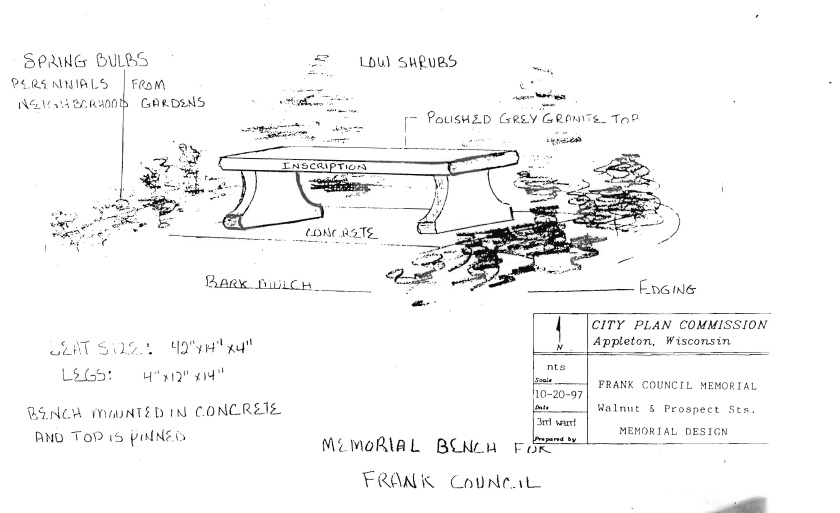 SPRING BULBS
PERENNIALS FROM
NEIGHBORHOOD GARDENS
LOW SHRUBS
POLISHED GREY GRANITE TOP
INSCRIPTION
CONCRETE
BARK MULCH
EDGING
SEAT SIZE: 42"x14"x4"
LEGS: 4"x12"x14"
BENCH MOUNTED IN CONCRETE
AND TOP IS PINNED
MEMORIAL BENCH FOR
FRANK COUNCIL
N
CITY PLAN COMMISSION
Appleton, Wisconsin
nts
Scale
10-20-97
Date
3rd ward
Prepared by
FRANK COUNCIL MEMORIAL
Walnut & Prospect Sts.
MEMORIAL DESIGN